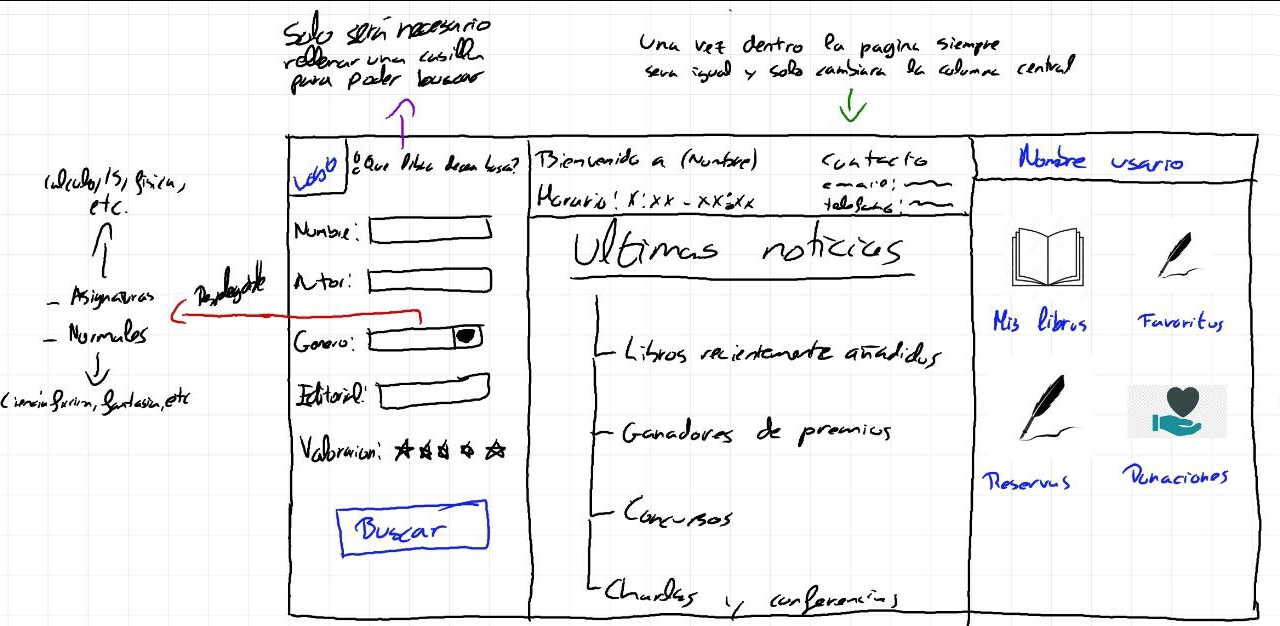 Solo será necesario
rellenar una casilla
para poder buscar
Una vez dentro la pagina siempre
sera igual y solo cambiara la columna central
calculo, IS, fisica,
etc.
- Asignaturas
- Normales
Ciencia ficcion, fantasia, etc
Desplegable
LOGO
¿Que libro desea buscar?
Nombre:
Autor:
Genero:
Editorial:
Valoracion:
Buscar
Bienvenido a (Nombre)
Horario: X:XX - XX:XX
Contacto
email:
telefono:
Ultimas noticias
Libros recientemente añadidos
Ganadores de premios
Concursos
Charlas y conferencias
Nombre usuario
Mis libros
Favoritos
Reservas
Donaciones